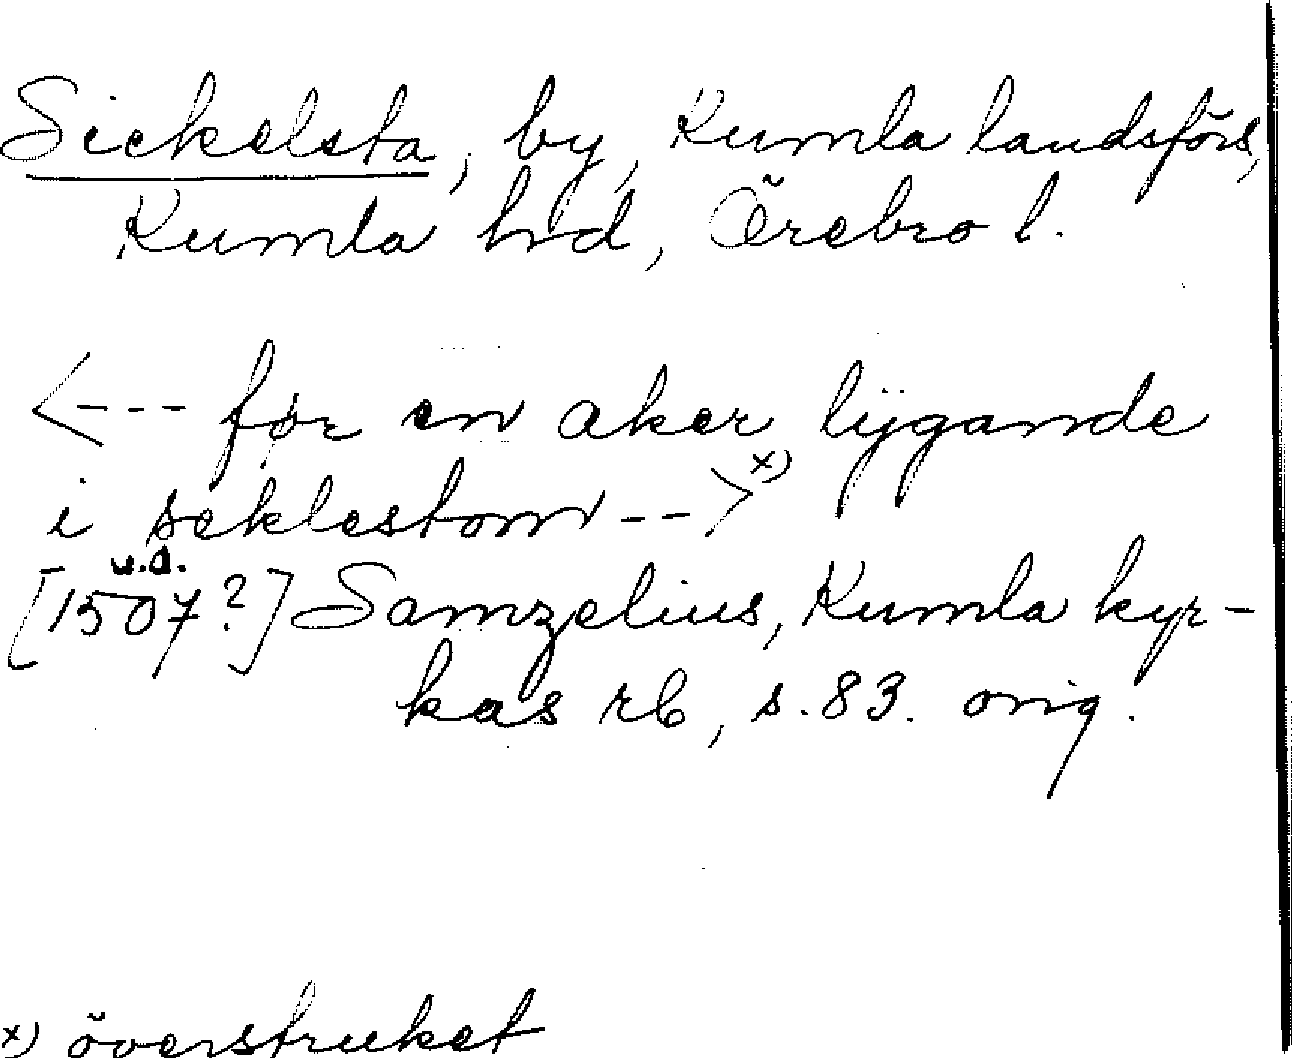 Sickelsta, by, Kumla landsförs,
Kumla hrd, Örebro l.
<--- før en aker lÿgande
i seklestom -->x)
u.a.
[1507?] Samzelius, Kumla kyr-
kas rb, s. 83. orig.
x) överstruket